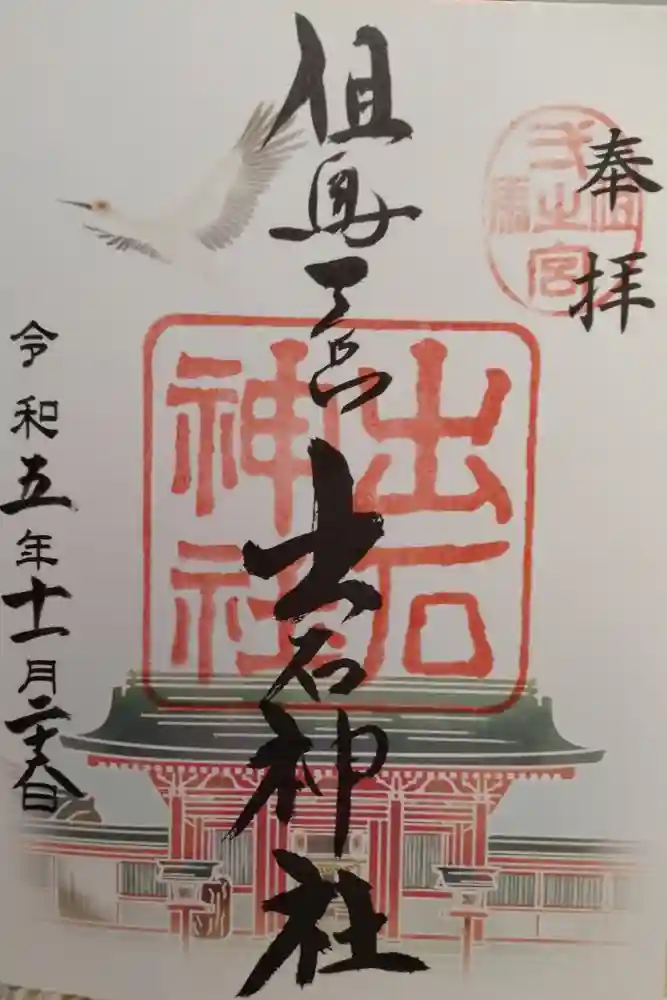 奉拝
但馬
弌之宮
但馬一宮 出石神社
出石
神社
令和五年十一月二十八日